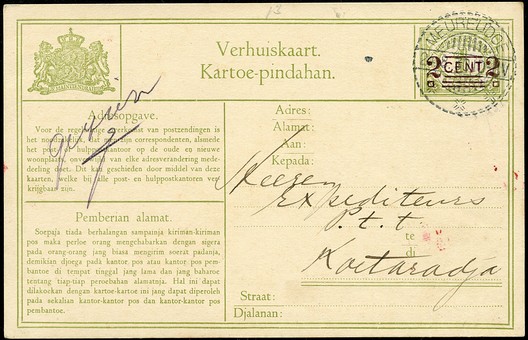 Verhuiskaart.
Kartoe-pindahan.
MEUREUDOE
2 CENT 2
Adresopgave.
Voor de regelmatige toekomst van postzendingen is
het noodzakelijk, dat zijn correspondenten, alsmede
het post- hulppostkantoor op de oude en nieuwe
woonplaats van elke adresverandering mede-
deeling Dit kan geschieden door middel van deze
kaarten, welke bij alle post- en hulppostkantoren ver-
krijgbaar zijn.
Pemberian alamat.
Soepaja tiada berhalangan sampainja kiriman-kiriman
pos maka perloe orang mengchabarkan dengan sigera
pada orang-orang jang biasa mengirim soerat padanja,
demikian djoega pada kantor pos atau kantor pos pem-
bantoe di tempat tinggal jang lama dan jang baharoe
tentang tiap-tiap peroebahan alamatnja. Hal ini dapat
dilakoekan dengan kartoe-kartoe ini jang dapat diperoleh
pada sekalian kantor-kantor pos dan kantor-kantor pos
pembantoe.
Adres:
Alamat:
Aan:
Kepada:
Heeren
Expediteurs
P.t.t
te
di
Koetaradja
Straat:
Djalanan: